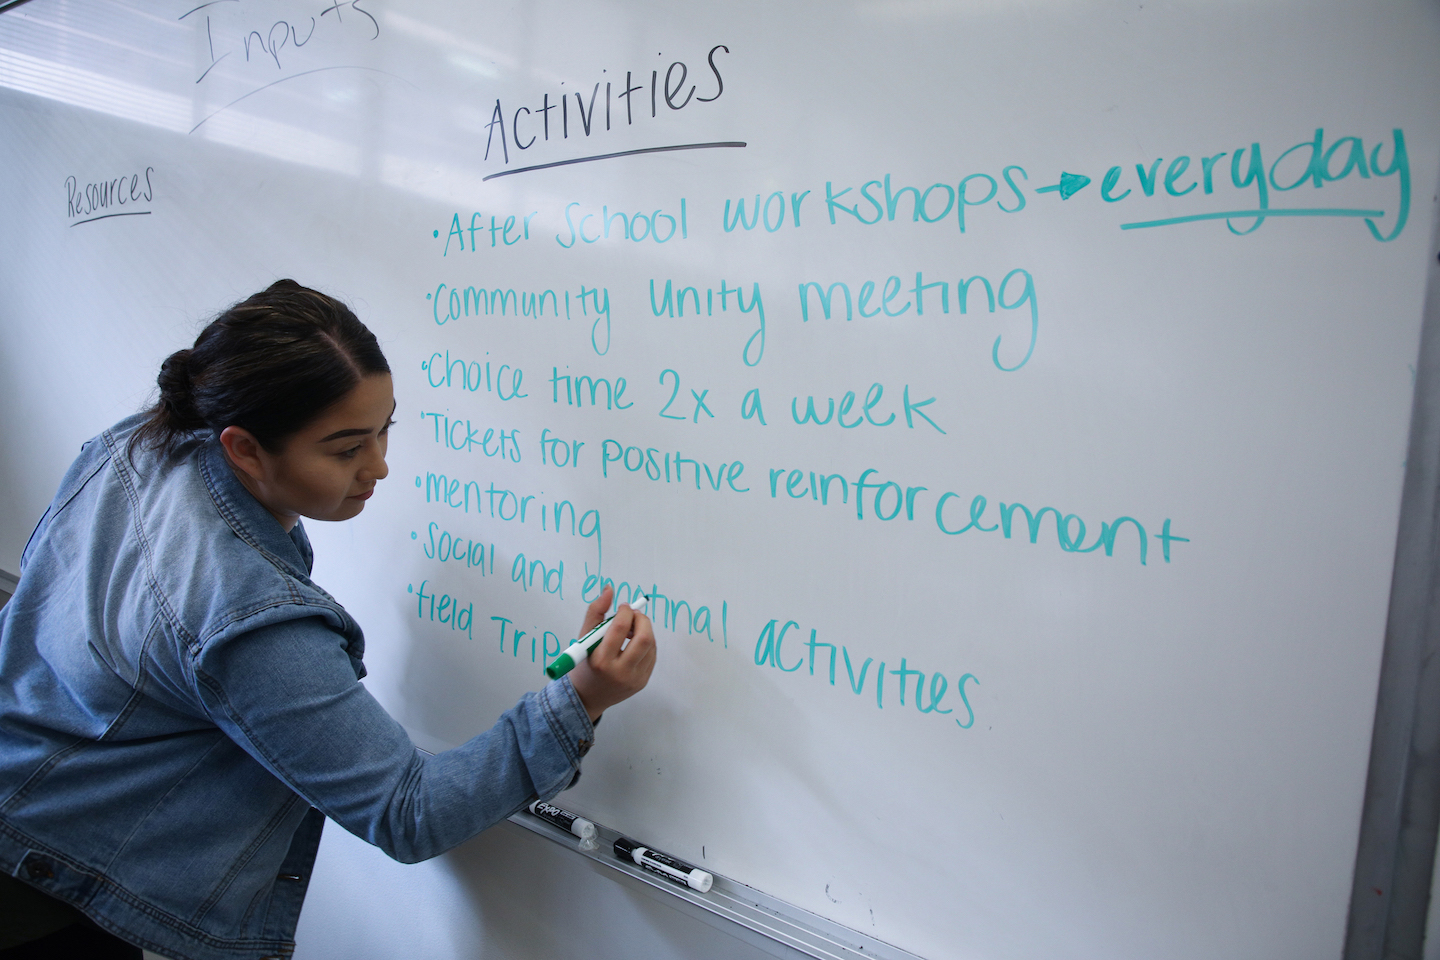 Inputs
Activities
Resources
• After School workshops → everyday
• Community Unity meeting
• Choice time 2x a week
• Tickets for positive reinforcement
• mentoring
• Social and activities
• field Trips
EXPO